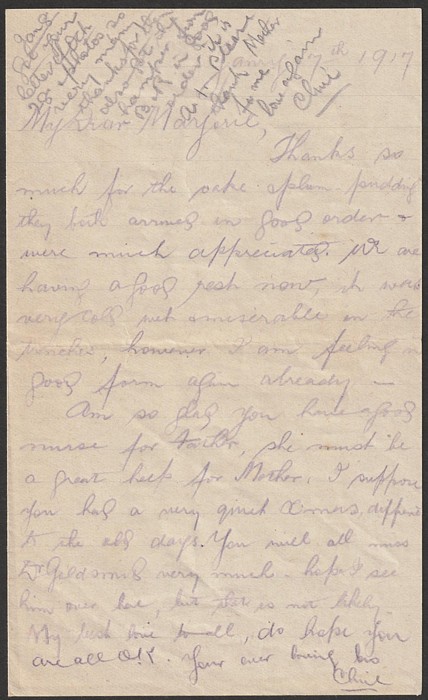 Jany 7th 1917
My Dear Marjorie,
Thanks so
much for the cake & plum pudding
they both arrived in good order &
were much appreciated. We are
having a good rest now, it was
very cold wet & miserable in the
trenches, however I am feeling in
good form again already —
Am so glad you have a good
nurse for Father, she must be
a great help for Mother. I suppose
you had a very quiet Xmas, different
to the old days. You will all miss
Dr Goldsmid very much. hope I see
him over here, but that is not likely.
My best love to all, do hope you
are all O.K. Your ever loving bro
Clive
Got your
letter
photos so
very many
thanks for
them
hamper from
in good
order it is
Please
thank Mother
for me
love again
Clive